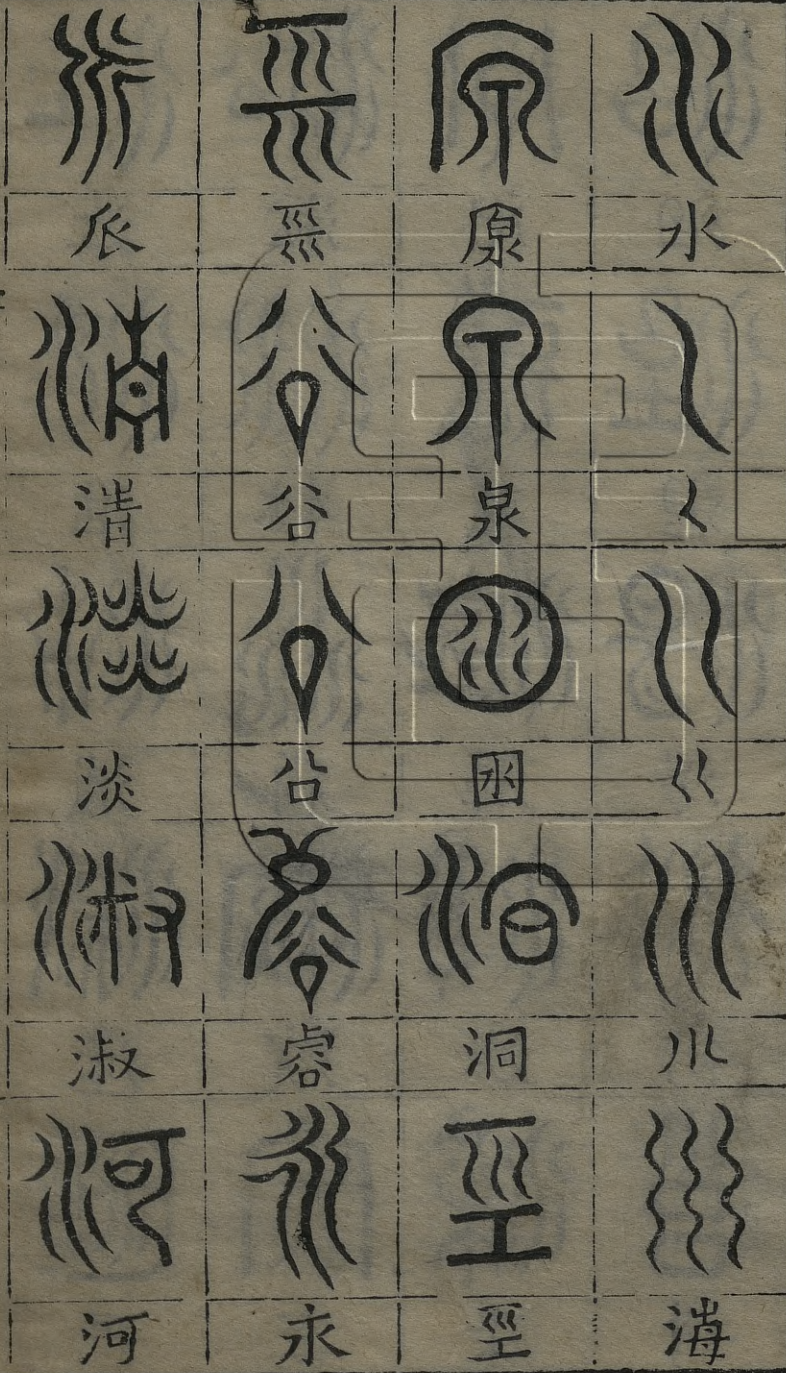 水
𡿨
巜
川
海
厡
泉
囦
洞
巠
谷
㕣
永
𠂢
清
淡
淑
河